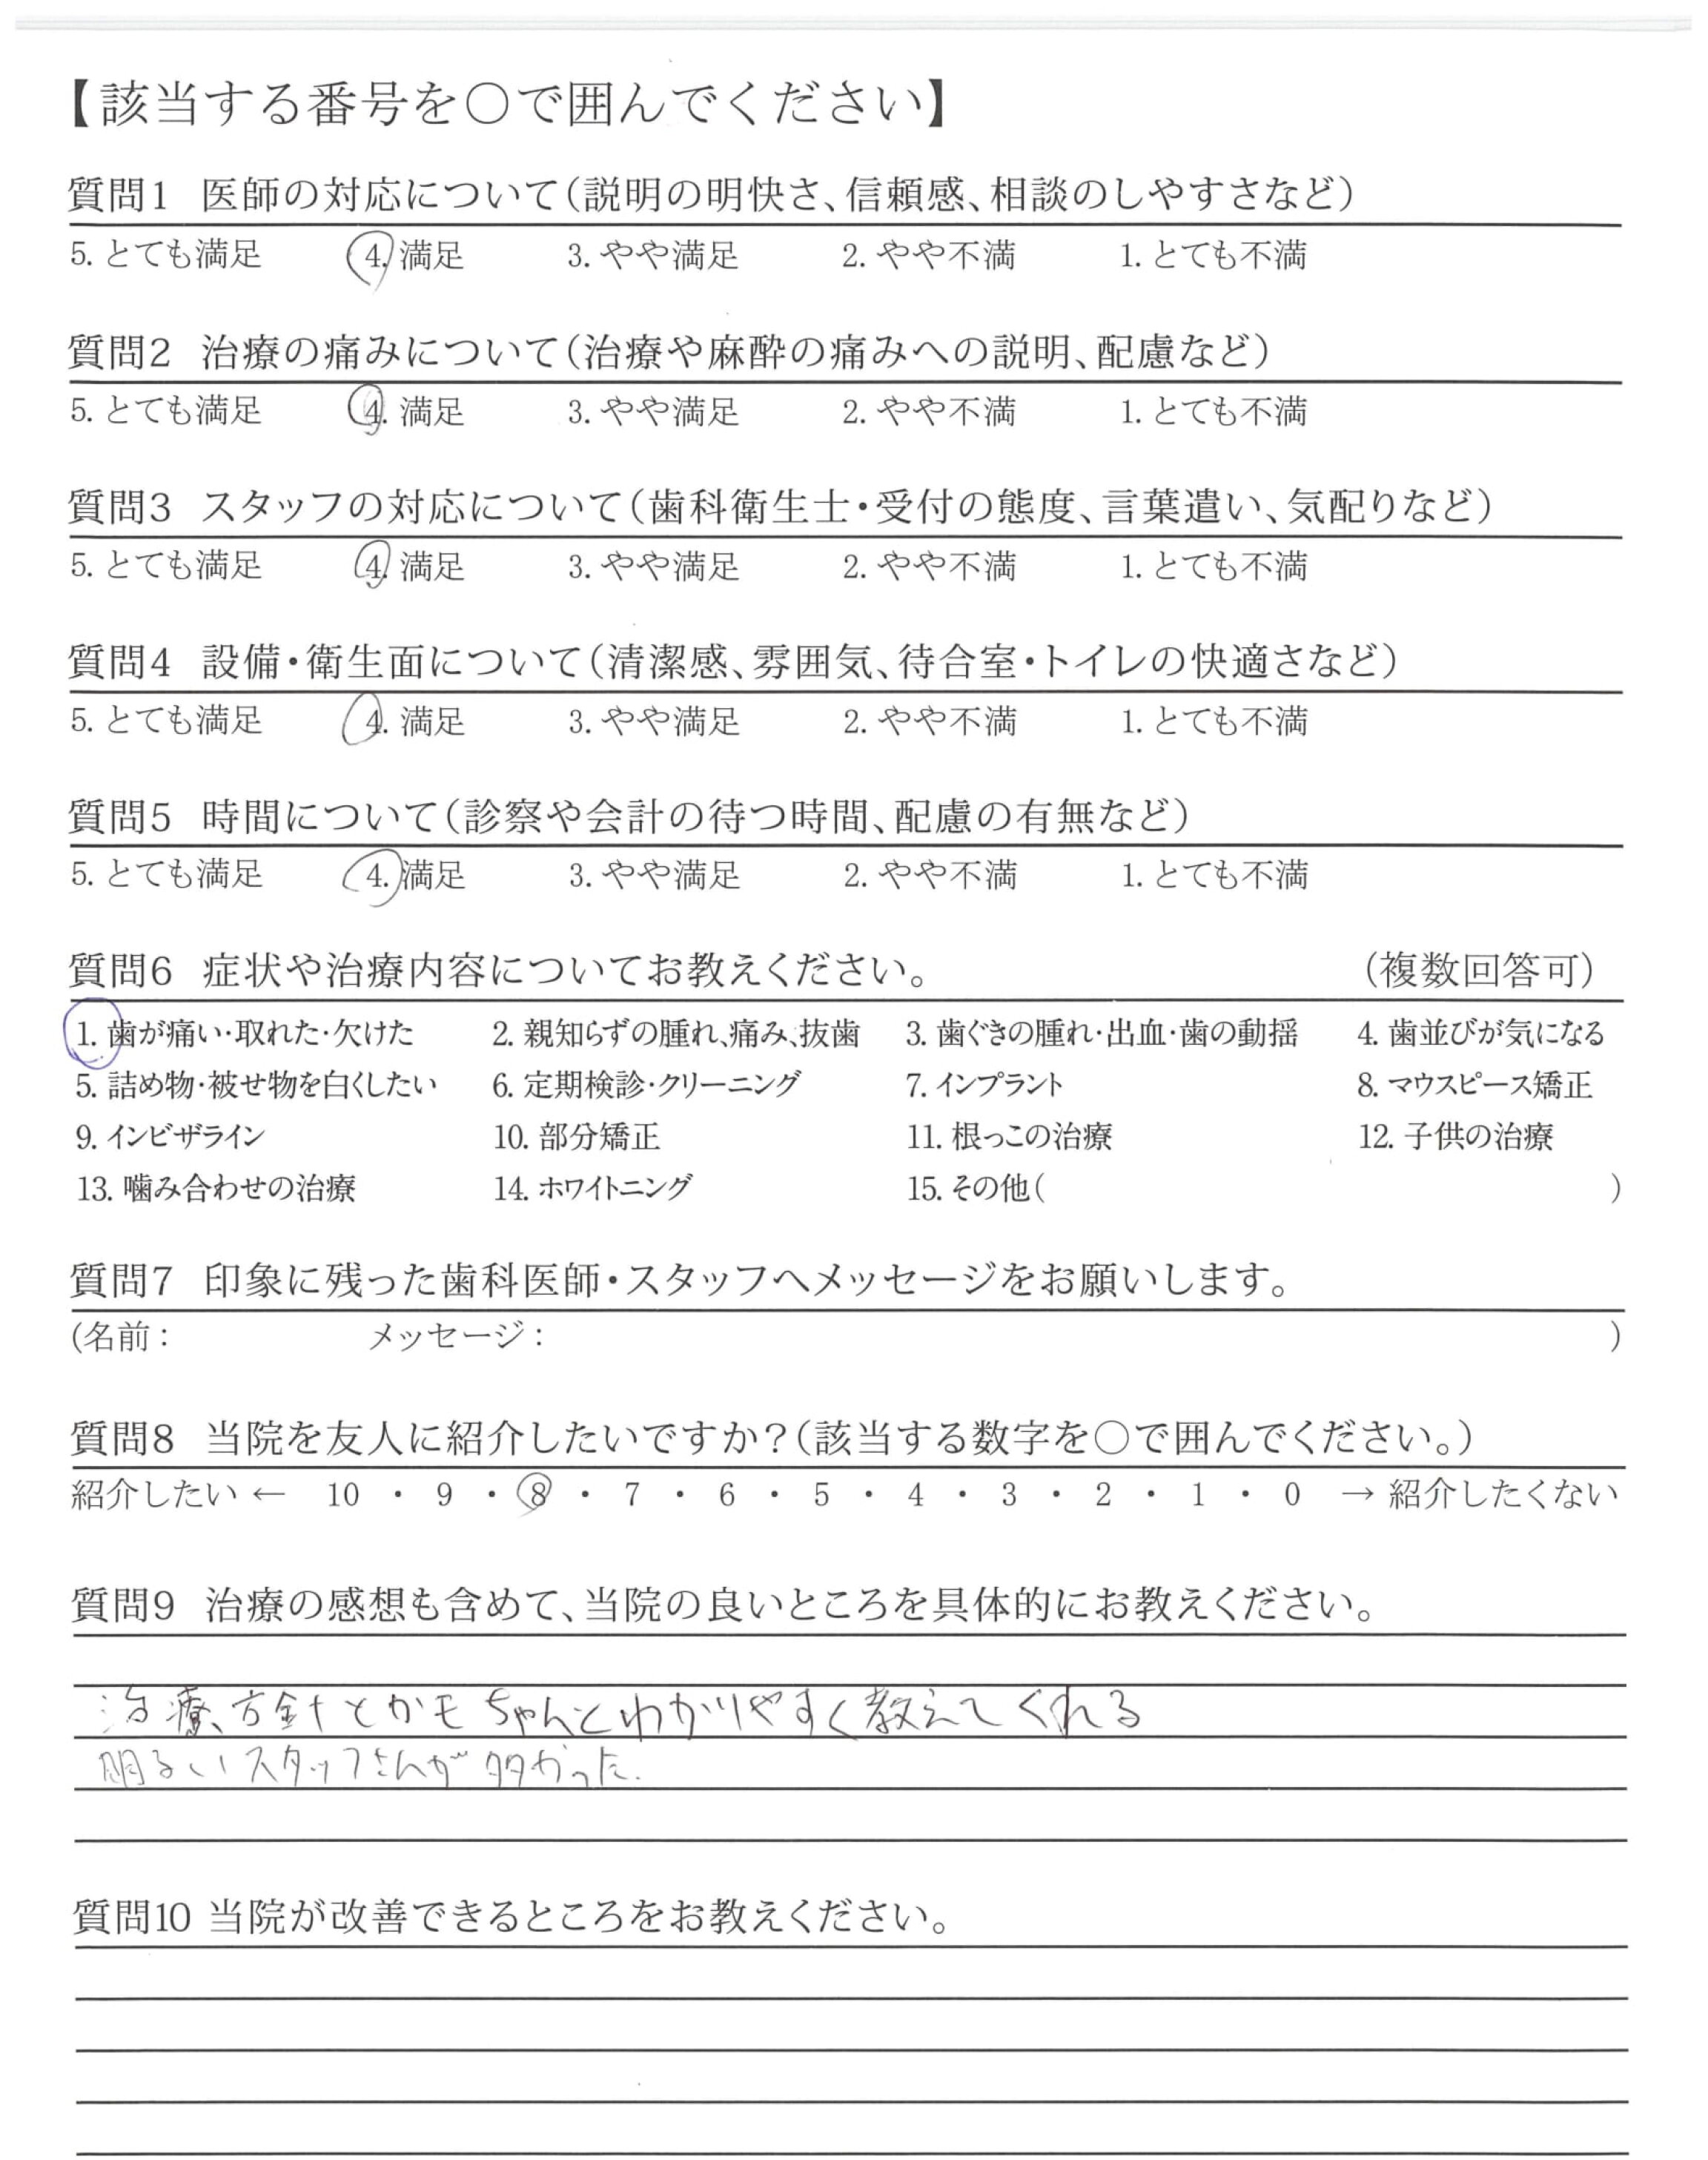 【該当する番号を〇で囲んでください】
質問1 医師の対応について(説明の明快さ、信頼感、相談のしやすさなど)
5. とても満足 4. 満足 3. やや満足 2. やや不満 1. とても不満
質問2 治療の痛みについて(治療や麻酔の痛みへの説明、配慮など)
5. とても満足 4. 満足 3. やや満足 2. やや不満 1. とても不満
質問3 スタッフの対応について(歯科衛生士・受付の態度、言葉遣い、気配りなど)
5. とても満足 4. 満足 3. やや満足 2. やや不満 1. とても不満
質問4 設備・衛生面について(清潔感、雰囲気、待合室・トイレの快適さなど)
5. とても満足 4. 満足 3. やや満足 2. やや不満 1. とても不満
質問5 時間について(診察や会計の待つ時間、配慮の有無など)
5. とても満足 4. 満足 3. やや満足 2. やや不満 1. とても不満
質問6 症状や治療内容についてお教えください。 (複数回答可)
1. 歯が痛い・取れた・欠けた 2. 親知らずの腫れ、痛み、抜歯 3. 歯ぐきの腫れ・出血・歯の動揺 4. 歯並びが気になる
5. 詰め物・被せ物を白くしたい 6. 定期検診・クリーニング 7. インプラント 8. マウスピース矯正
9. インビザライン 10. 部分矯正 11. 根っこの治療 12. 子供の治療
13. 噛み合わせの治療 14. ホワイトニング 15. その他( )
質問7 印象に残った歯科医師・スタッフへメッセージをお願いします。
(名前: メッセージ: )
質問8 当院を友人に紹介したいですか?(該当する数字を〇で囲んでください。)
紹介したい ← 10 ・ 9 ・ 8 ・ 7 ・ 6 ・ 5 ・ 4 ・ 3 ・ 2 ・ 1 ・ 0 → 紹介したくない
質問9 治療の感想も含めて、当院の良いところを具体的にお教えください。
治療、方針とかもちゃんとわかりやすく教えてくれる
明るいスタッフさんが多かった.
質問10 当院が改善できるところをお教えください。